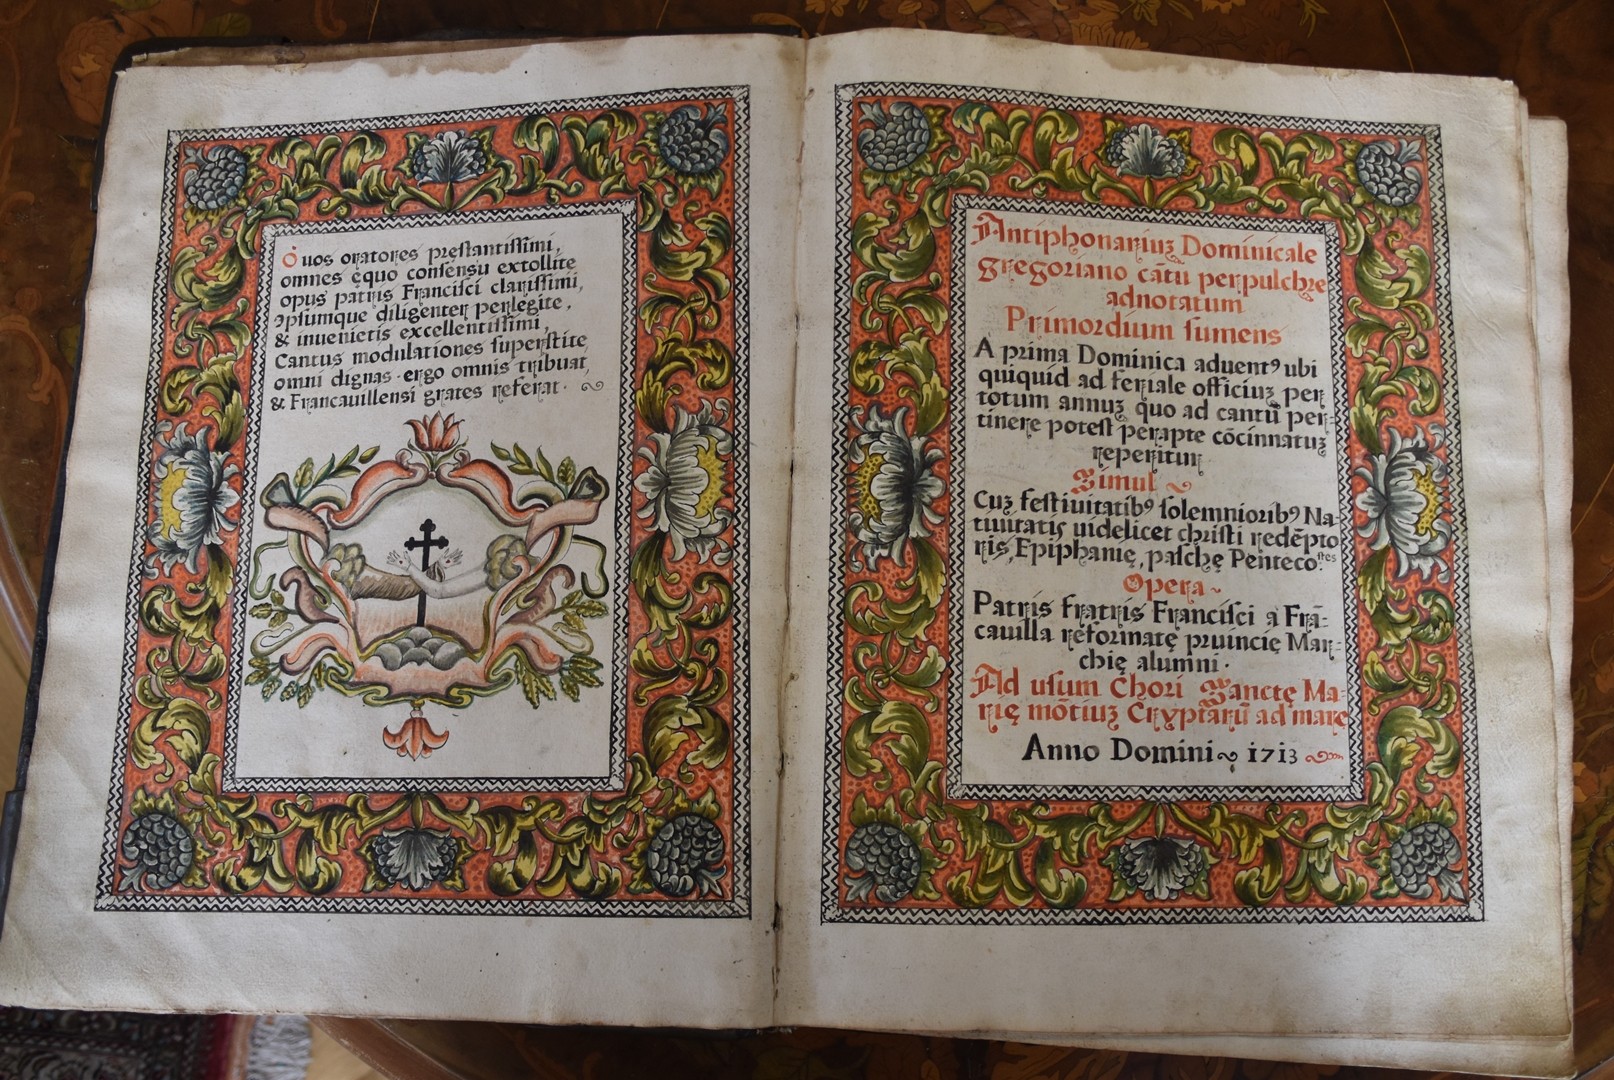 O uos oratores prestantissimi,
omnes ęquo consensu extollite
opus patris Francisci clarissimi,
Ipsumque diligenter perlegite,
& inuenietis excellentissimi,
Cantus modulationes superstite
omni dignas · ergo omnis tribuat,
& Francauillensi grates referat ·
Antiphonariuʒ Dominicale
gregoriano cãtu perpulchre
adnotatum
Primordium sumens
A prima Dominica aduentꝰ ubi
quiquid ad feriale officiuʒ per
totum annuʒ quo ad cantũ per-
tinere potest perapte cõcinnatuʒ
reperitur
Simul
Cuʒ festiuitatibꝰ solemnioribꝰ Na-
tiuitatis uidelicet christi redẽpto
ris, Epiphanię, paschę Penteco.stes
Opera
Patris fratris Francisci a Frã-
cauilla reformatę prouincię Mar-
chię alumni ·
Ad usum Chori Sanctę Ma-
rię mõtiuʒ Cryptarũ ad mare
Anno Domini 1713